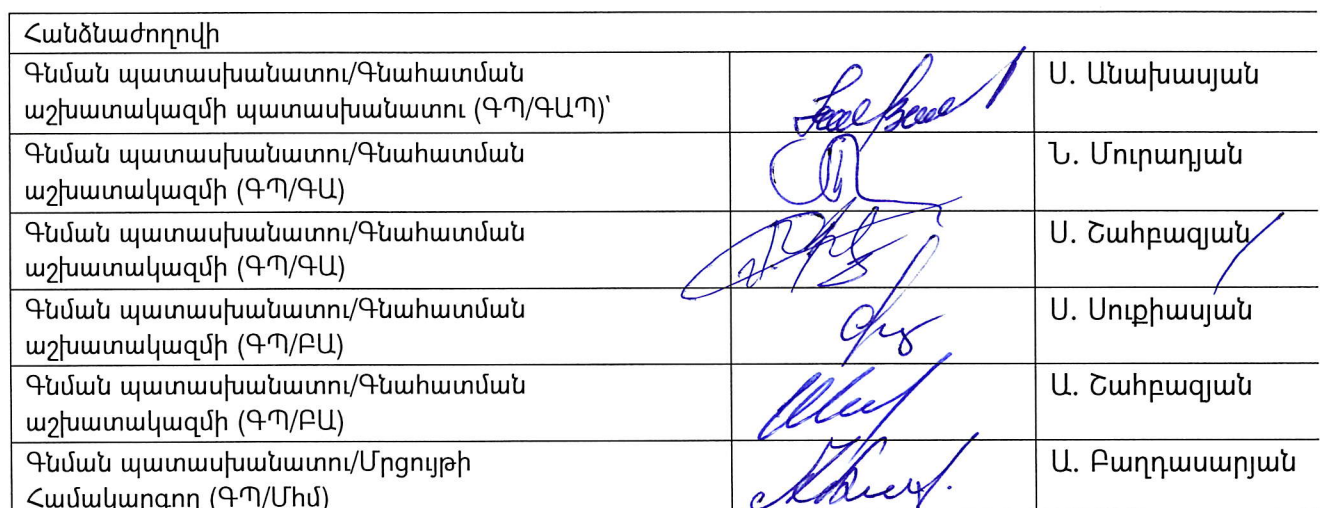 Հանձնաժողովի
Գնման պատասխանատու/Գնահատման
աշխատակազմի պատասխանատու (ԳՊ/ԳԱՊ)՝
Ս. Անախասյան
Գնման պատասխանատու/Գնահատման
աշխատակազմի (ԳՊ/ԳԱ)
Ն. Մուրադյան
Գնման պատասխանատու/Գնահատման
աշխատակազմի (ԳՊ/ԳԱ)
Ս. Շահբազյան
Գնման պատասխանատու/Գնահատման
աշխատակազմի (ԳՊ/ԲԱ)
Ս. Սուքիասյան
Գնման պատասխանատու/Գնահատման
աշխատակազմի (ԳՊ/ԲԱ)
Ա. Շահբազյան
Գնման պատասխանատու/Մրցույթի
Համակարգող (ԳՊ/Մհմ)
Ա. Բաղդասարյան